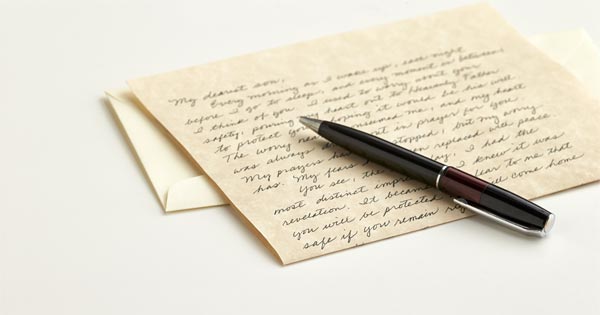 My dearest son,
Every morning as I wake up, each night
before I go to sleep, and every moment in between
I think of you. I used to worry about your
safety, pouring my heart out to Heavenly Father
to protect you, hoping it would be his will
The worry near consumed me, and my heart
was always in prayer for you
My prayers stopped, but my worry
has. My fears been replaced with peace
You see, the day, I had the
most distinct impression I knew it was
revelation. It became clear to me that
you will be protected come home
safe if you remain